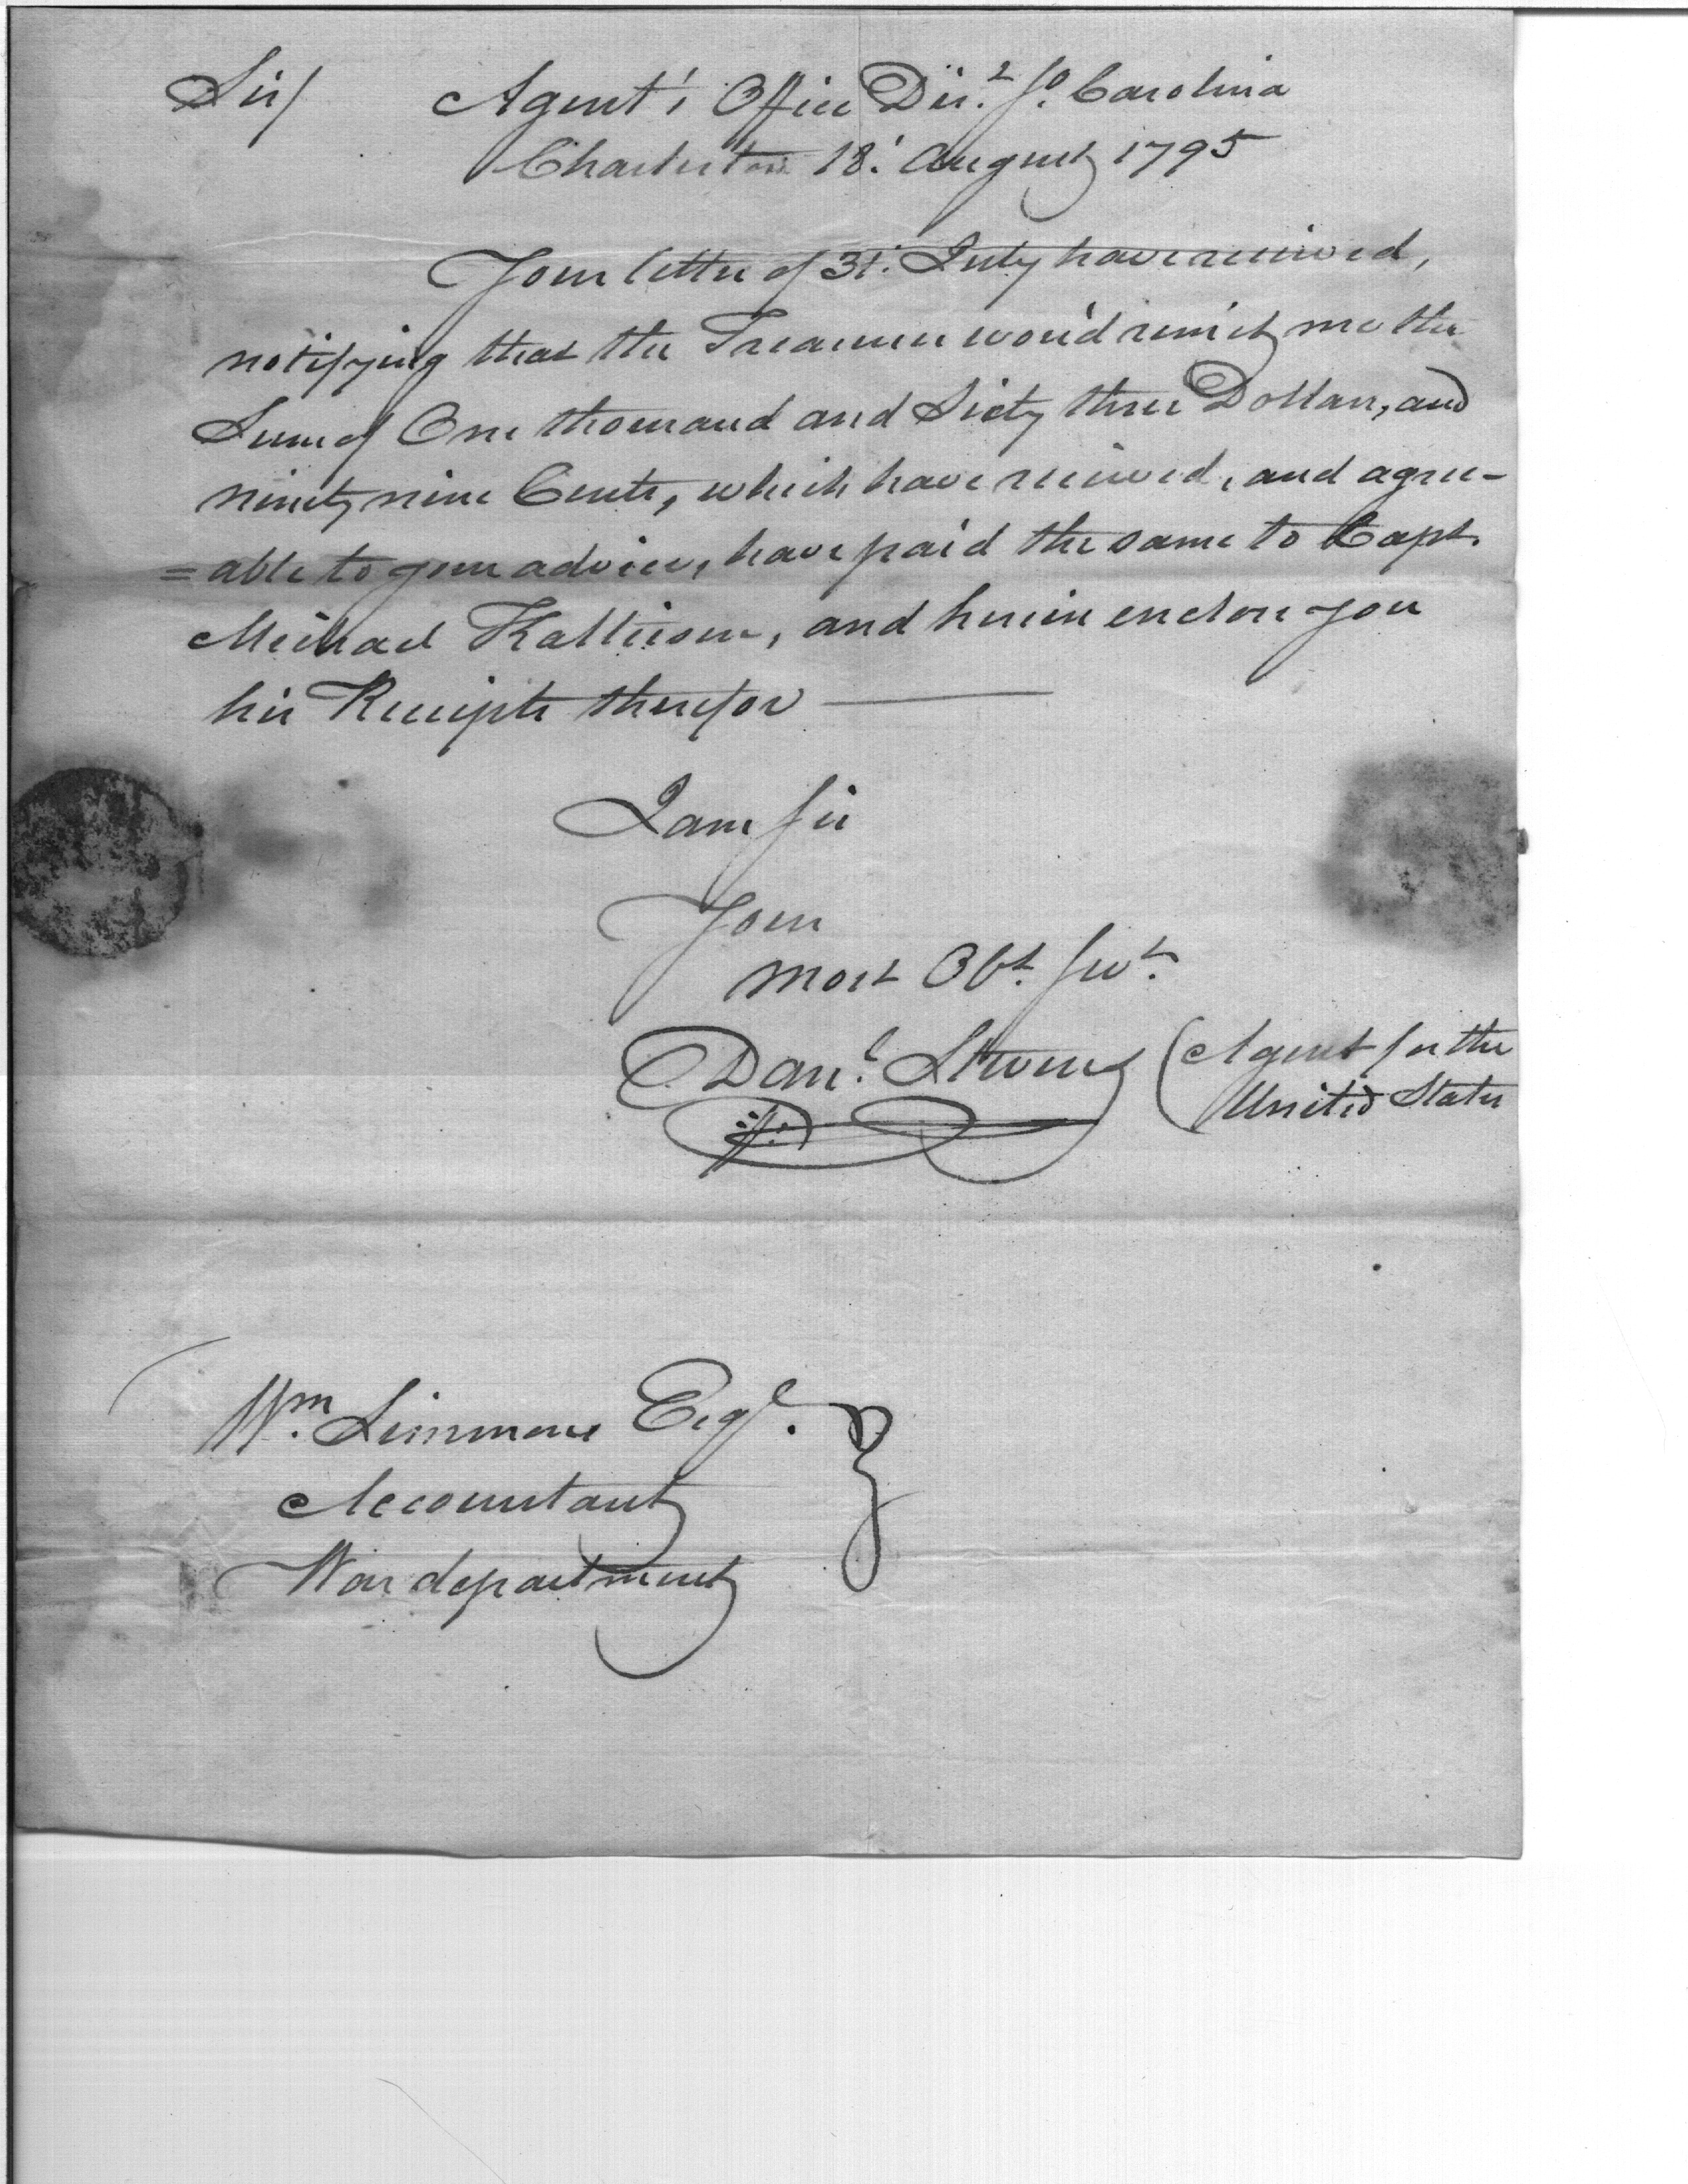 Sir/ Agent's Office Dis.t So. Carolina
Charleston 18.' August 1795
Your letter of 31.' July have received,
notifying that the Treasurer wou'd remit me the
Sum of One thousand and Sixty three Dollars, and
ninety nine Cents, which have received, and agree-
=able to your advice, have paid the same to Capt.
Michael Kalteisen, and herein enclose you
his Receipts therefor —
I am Sir
Your
most Obt. Servt.
Danl. Stevens (Agent for the
United States
Wm. Simmons Esqr.
Accountant
War department